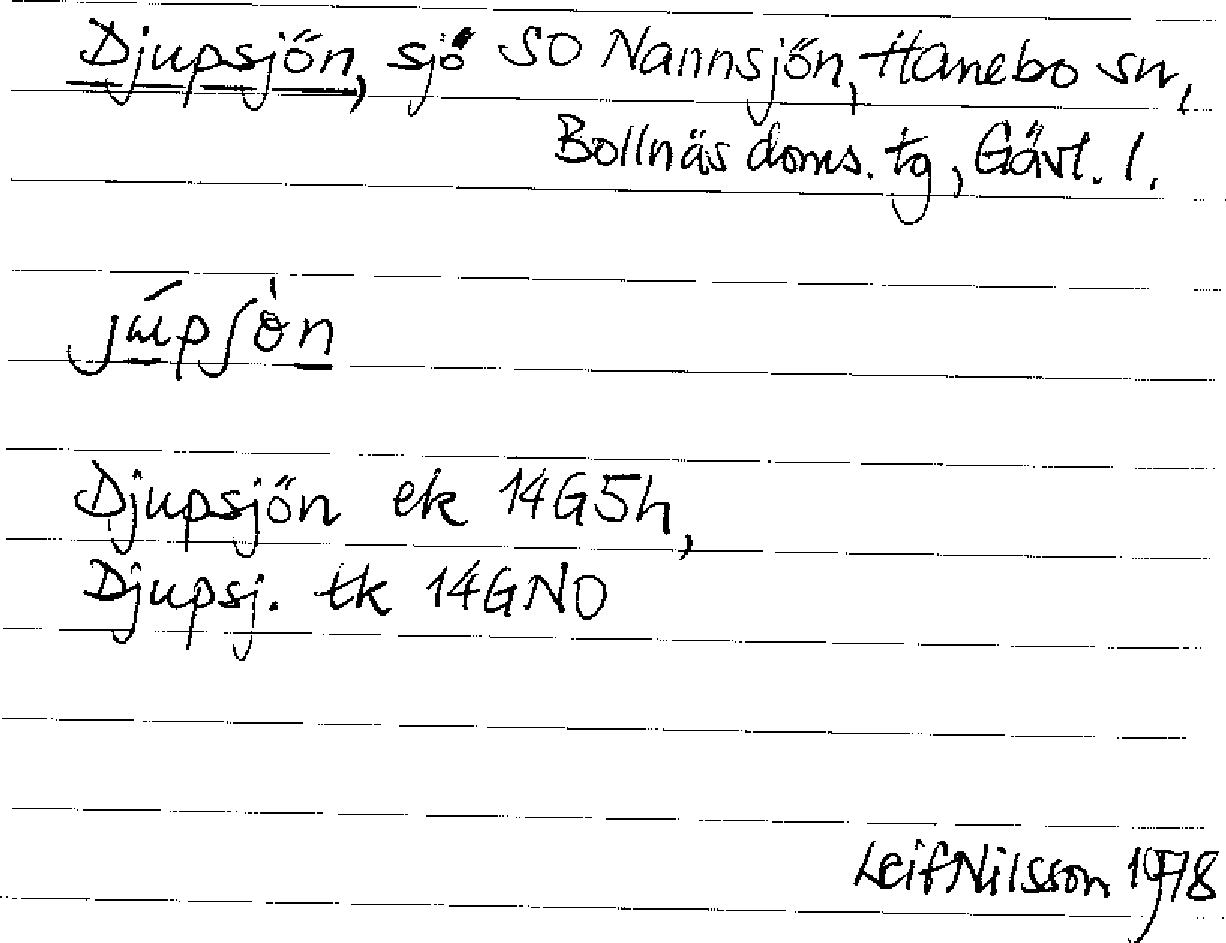 Djupsjön, sjö SO Nannsjön, Hanebo sn,
Bollnäs doms. tg, Gävl. l.
Djupsjön ek 14G5h,
Djupsj. tk 14GNO
Leif Nilsson 1978